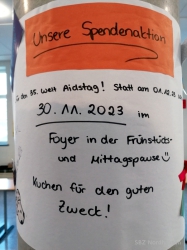 Unsere Spendenaktion
den 35. Welt Aidstag! Statt am 01.12.23
30.11.2023 im
Foyer in der Frühstücks-
und Mittagspause
Kuchen für den guten
Zweck!